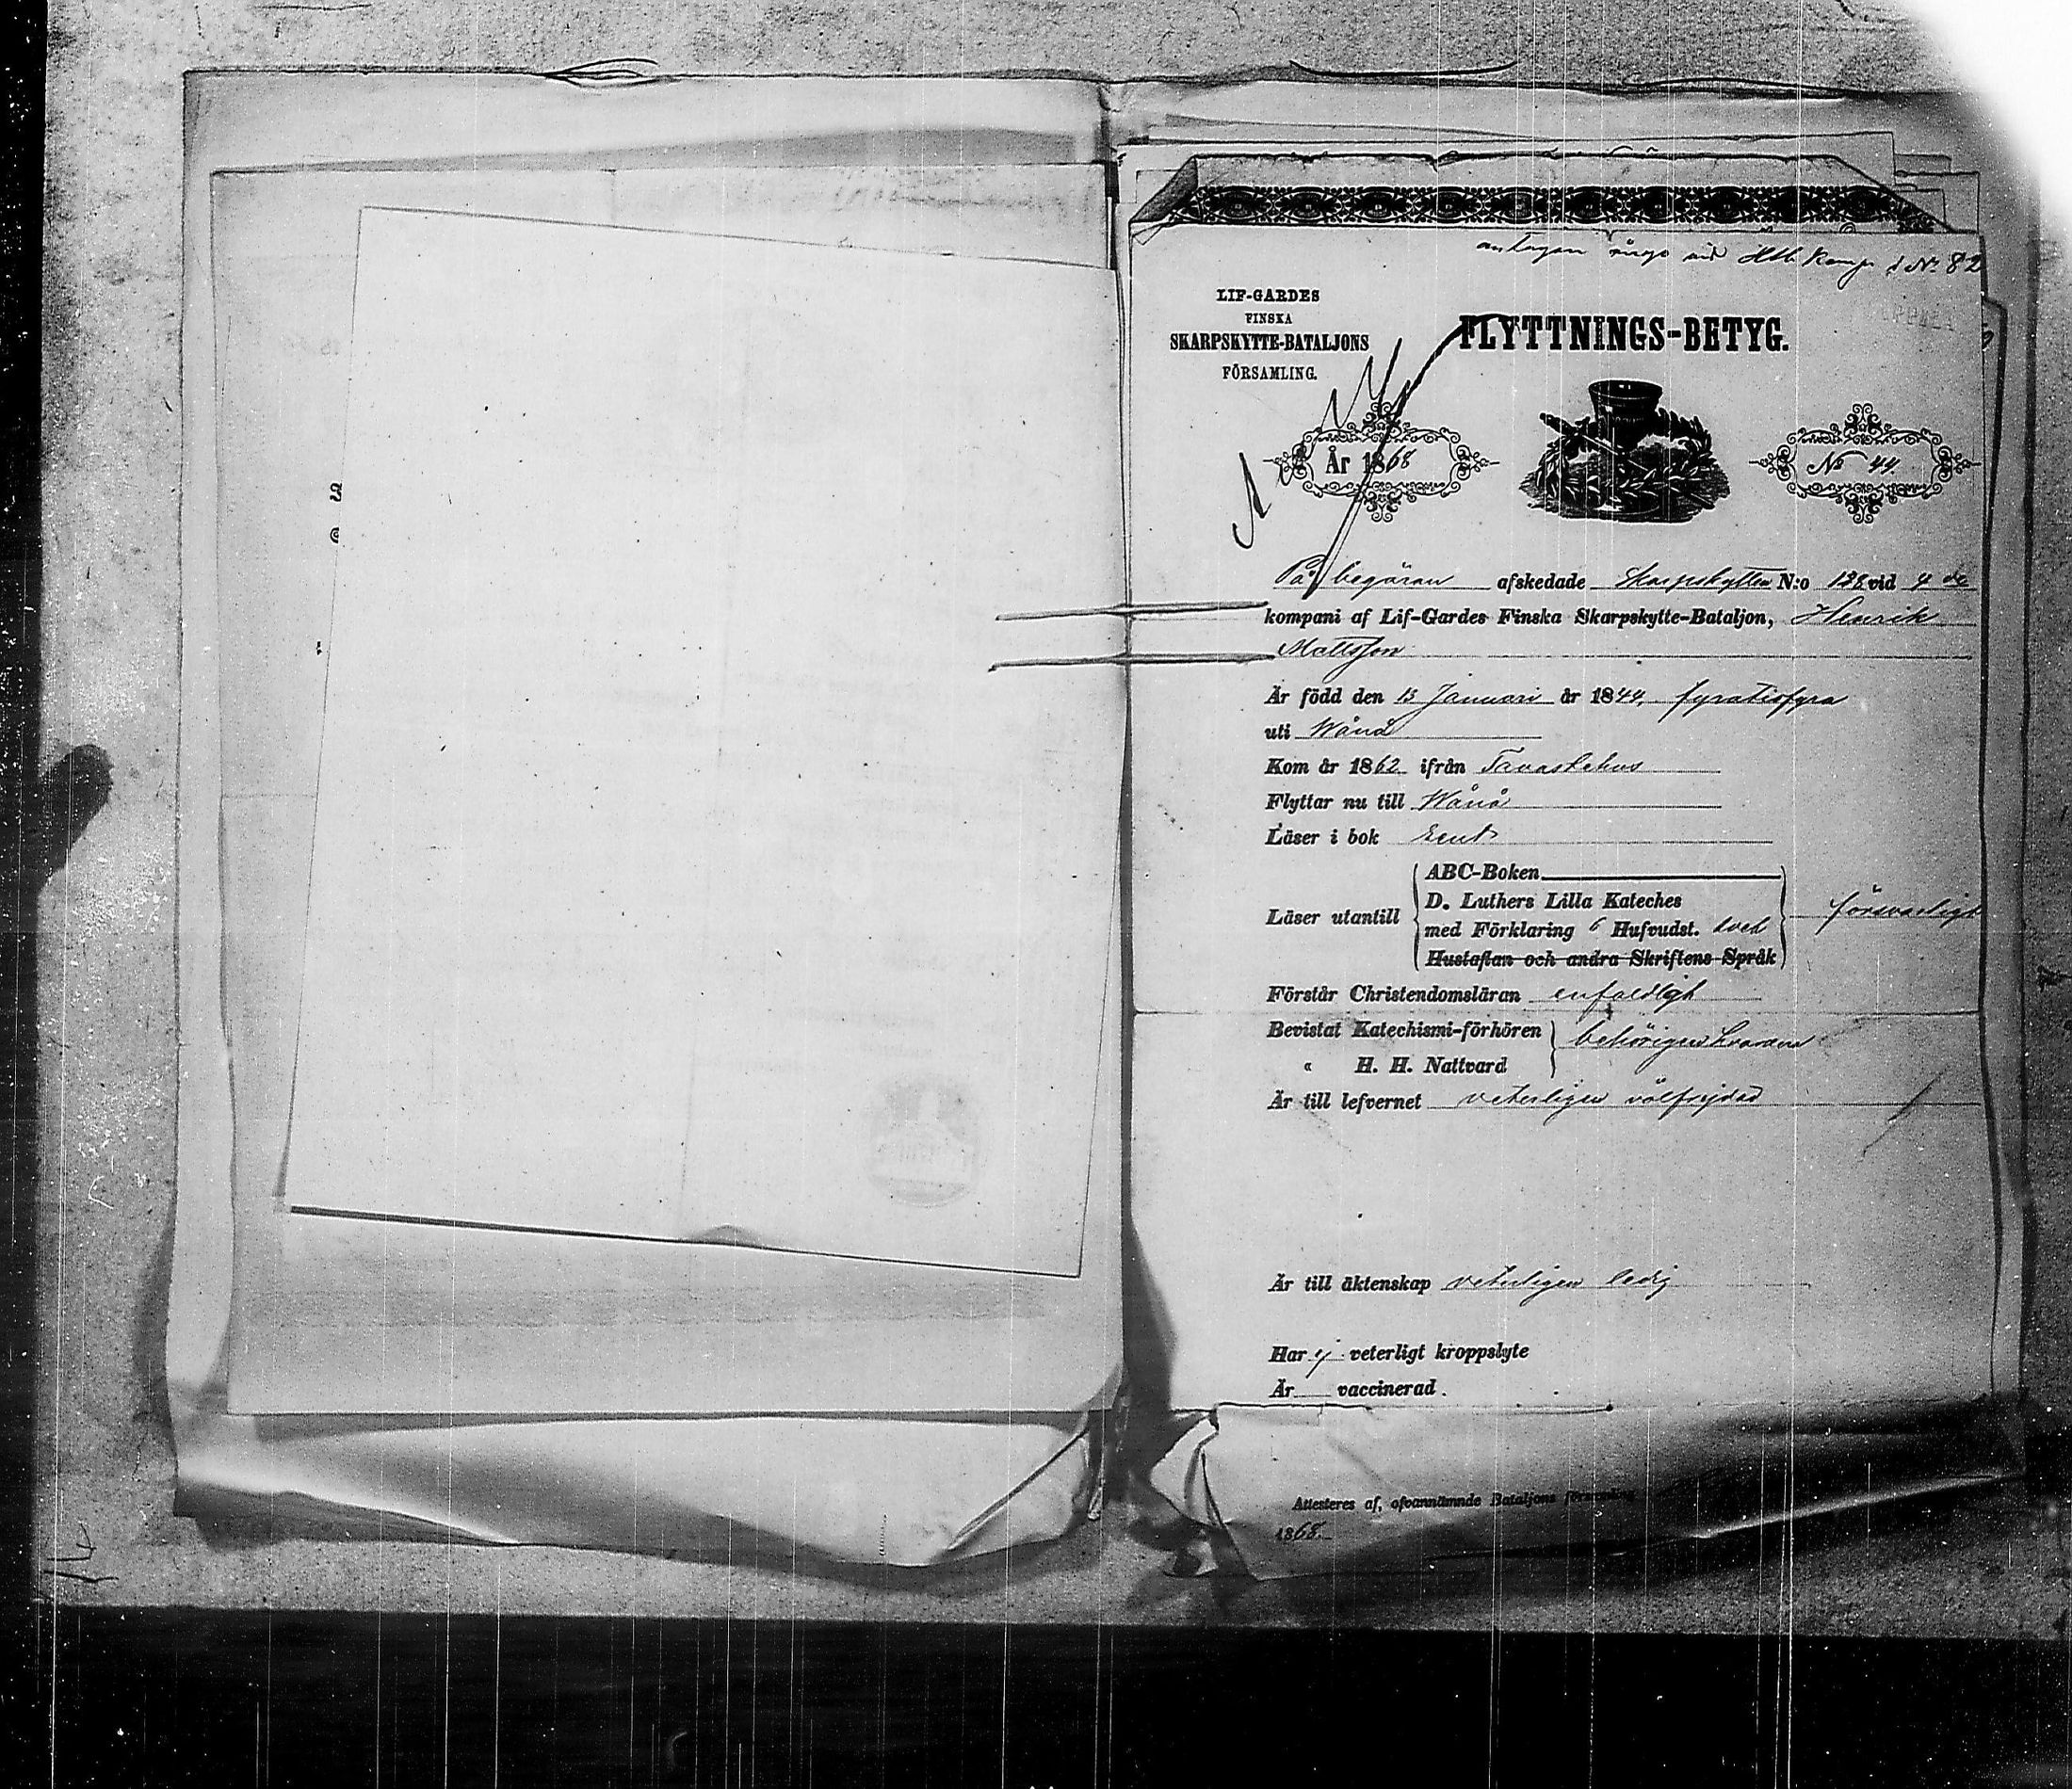 antagen ånyo vid 4th komp. N: 82
LIF-GARDES
FINSKA
SKARPSKYTTE-BATALJONS
FÖRSAMLING.
FLYTTNINGS-BETYG.
År 1868
No 44.
På begäran afskedade Skarpskytten N:o 138 vid 4 de
kompani af Lif-Gardes Finska Skarpskytte-Bataljon, Henrik
Mattsson
Är född den 13 Januari år 1844, fyratiofyra
uti Wånå
Kom år 1862 ifrån Tavastehus
Flyttar nu till Wånå
Läser i bok rent
ABC-Boken
D. Luthers Lilla Kateches
Läser utantill
med Förklaring 6 Hufvudst. försvarligt
Hustaflan och andra Skriftens Språk
Förstår Christendomsläran enfaldigt
Bevistat Katechismi-förhören
behörigen
« H. H. Nattvard
Är till lefvernet veterligen välfrejdad
Är till äktenskap veterligen ledig
Har ej veterligt kroppslyte
Är vaccinerad.
Attesteras af, ofvannämnde Bataljons församling
1868.